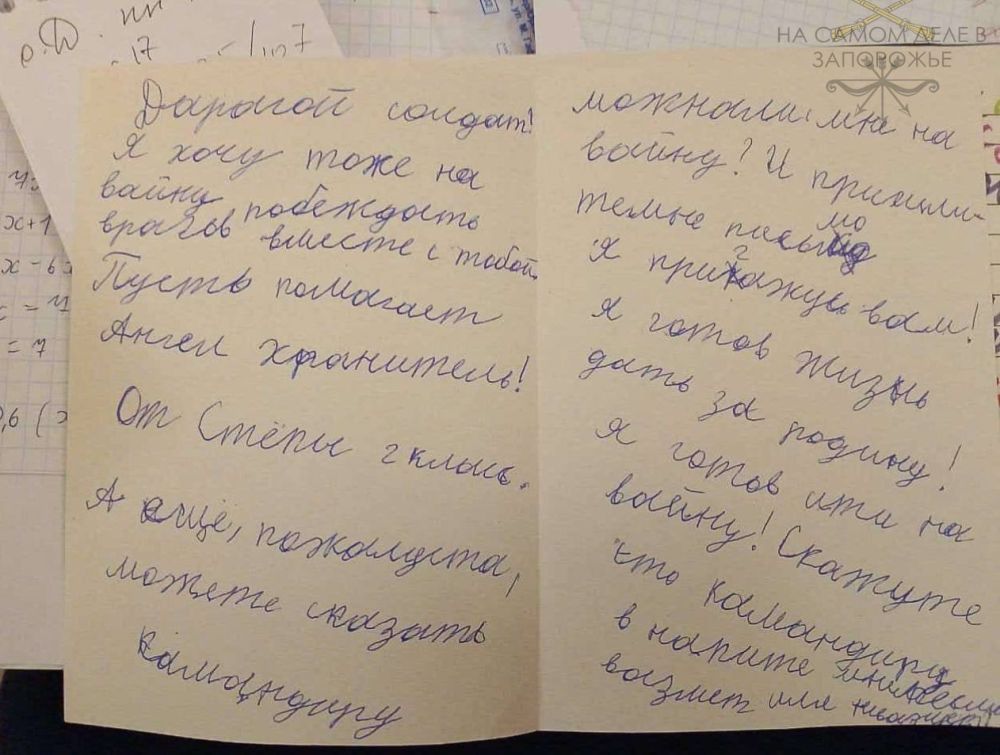 НА САМОМ ДЕЛЕ В
ЗАПОРОЖЬЕ
17
x+1
= 7
Дарагой солдат!
Я хочу тоже на
вайну побеждать
врагов вместе с тобой.
Пусть помагает
Ангел хранитель!
От Стёпы 2 класс.
А еще, пожалуста,
можете сказать
камандиру
можнали мне на
вайну? И пришли-
темне письмо
Я пригажусь вам!
Я готов жизнь
дать за родину!
Я готов ити на
вайну! Скажуте
это камандиру
в напите мне если
вазмет или